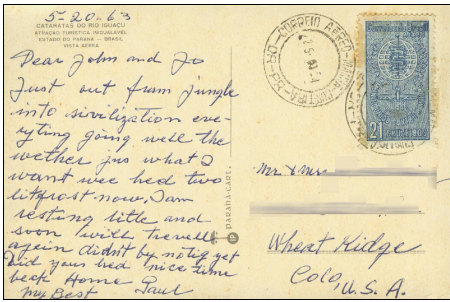 5-20-63
CATARATAS DO RIO IGUAÇU
ATRAÇÃO TURÍSTICA INIGUALÁVEL
ESTADO DO PARANÁ - BRASIL
VISTA AÉREA
Dear John and Jo
Just out from jungle
into sivilization eve-
ryting going well the
wether jus what I
want wee hed two
litfrost now. I am
resting litle and
soon will travell
again didn't by notig yet
Did you hed nice time
beck Home Paul
My Best
PARANÁ-CART.
CORREIO AÉREO
21 CRUZEIROS
Mr. & Mrs.
Wheat Ridge
Colo,
U.S.A.